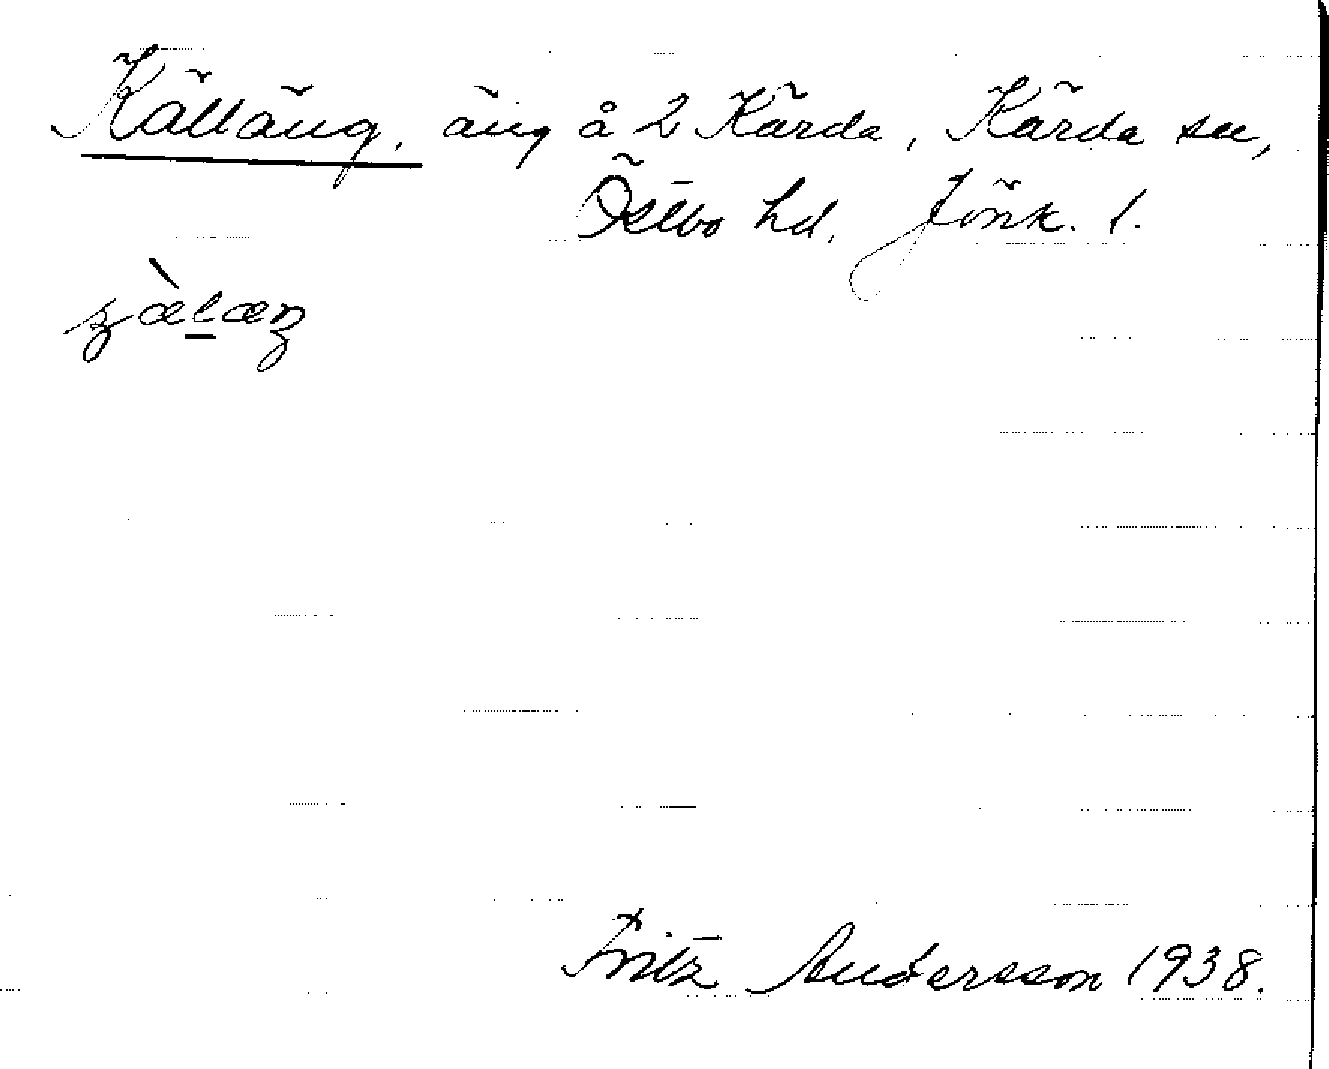 Källäng, äng å 2 Kärda, Kärda sn,
Östbo hd. Jönk. l.
Fritz Andersson 1938.